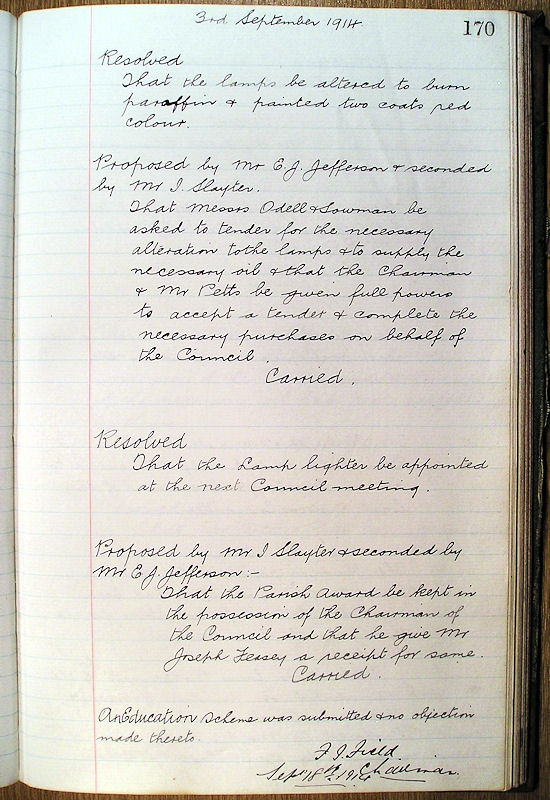 3rd September 1914
170
Resolved
That the lamps be altered to burn
paraffin & painted two coats red
colour.
Proposed by Mr E. J. Jefferson & seconded
by Mr I. Slayter.
That Messrs Odell & Sowman be
asked to tender for the necessary
alteration to the lamps & to supply the
necessary oil & that the Chairman
& Mr Petts be given full powers
to accept a tender & complete the
necessary purchases on behalf of
the Council.
Carried.
Resolved
That the Lamp lighter be appointed
at the next Council meeting.
Proposed by Mr I Slayter & seconded by
Mr E. J. Jefferson:-
That the Parish Award be kept in
the possession of the Chairman of
the Council and that he give Mr
Joseph Feasey a receipt for same.
Carried.
An Education Scheme was submitted & no objection
made thereto.
F. J. Field
Sept 18th 1914 Chairman.